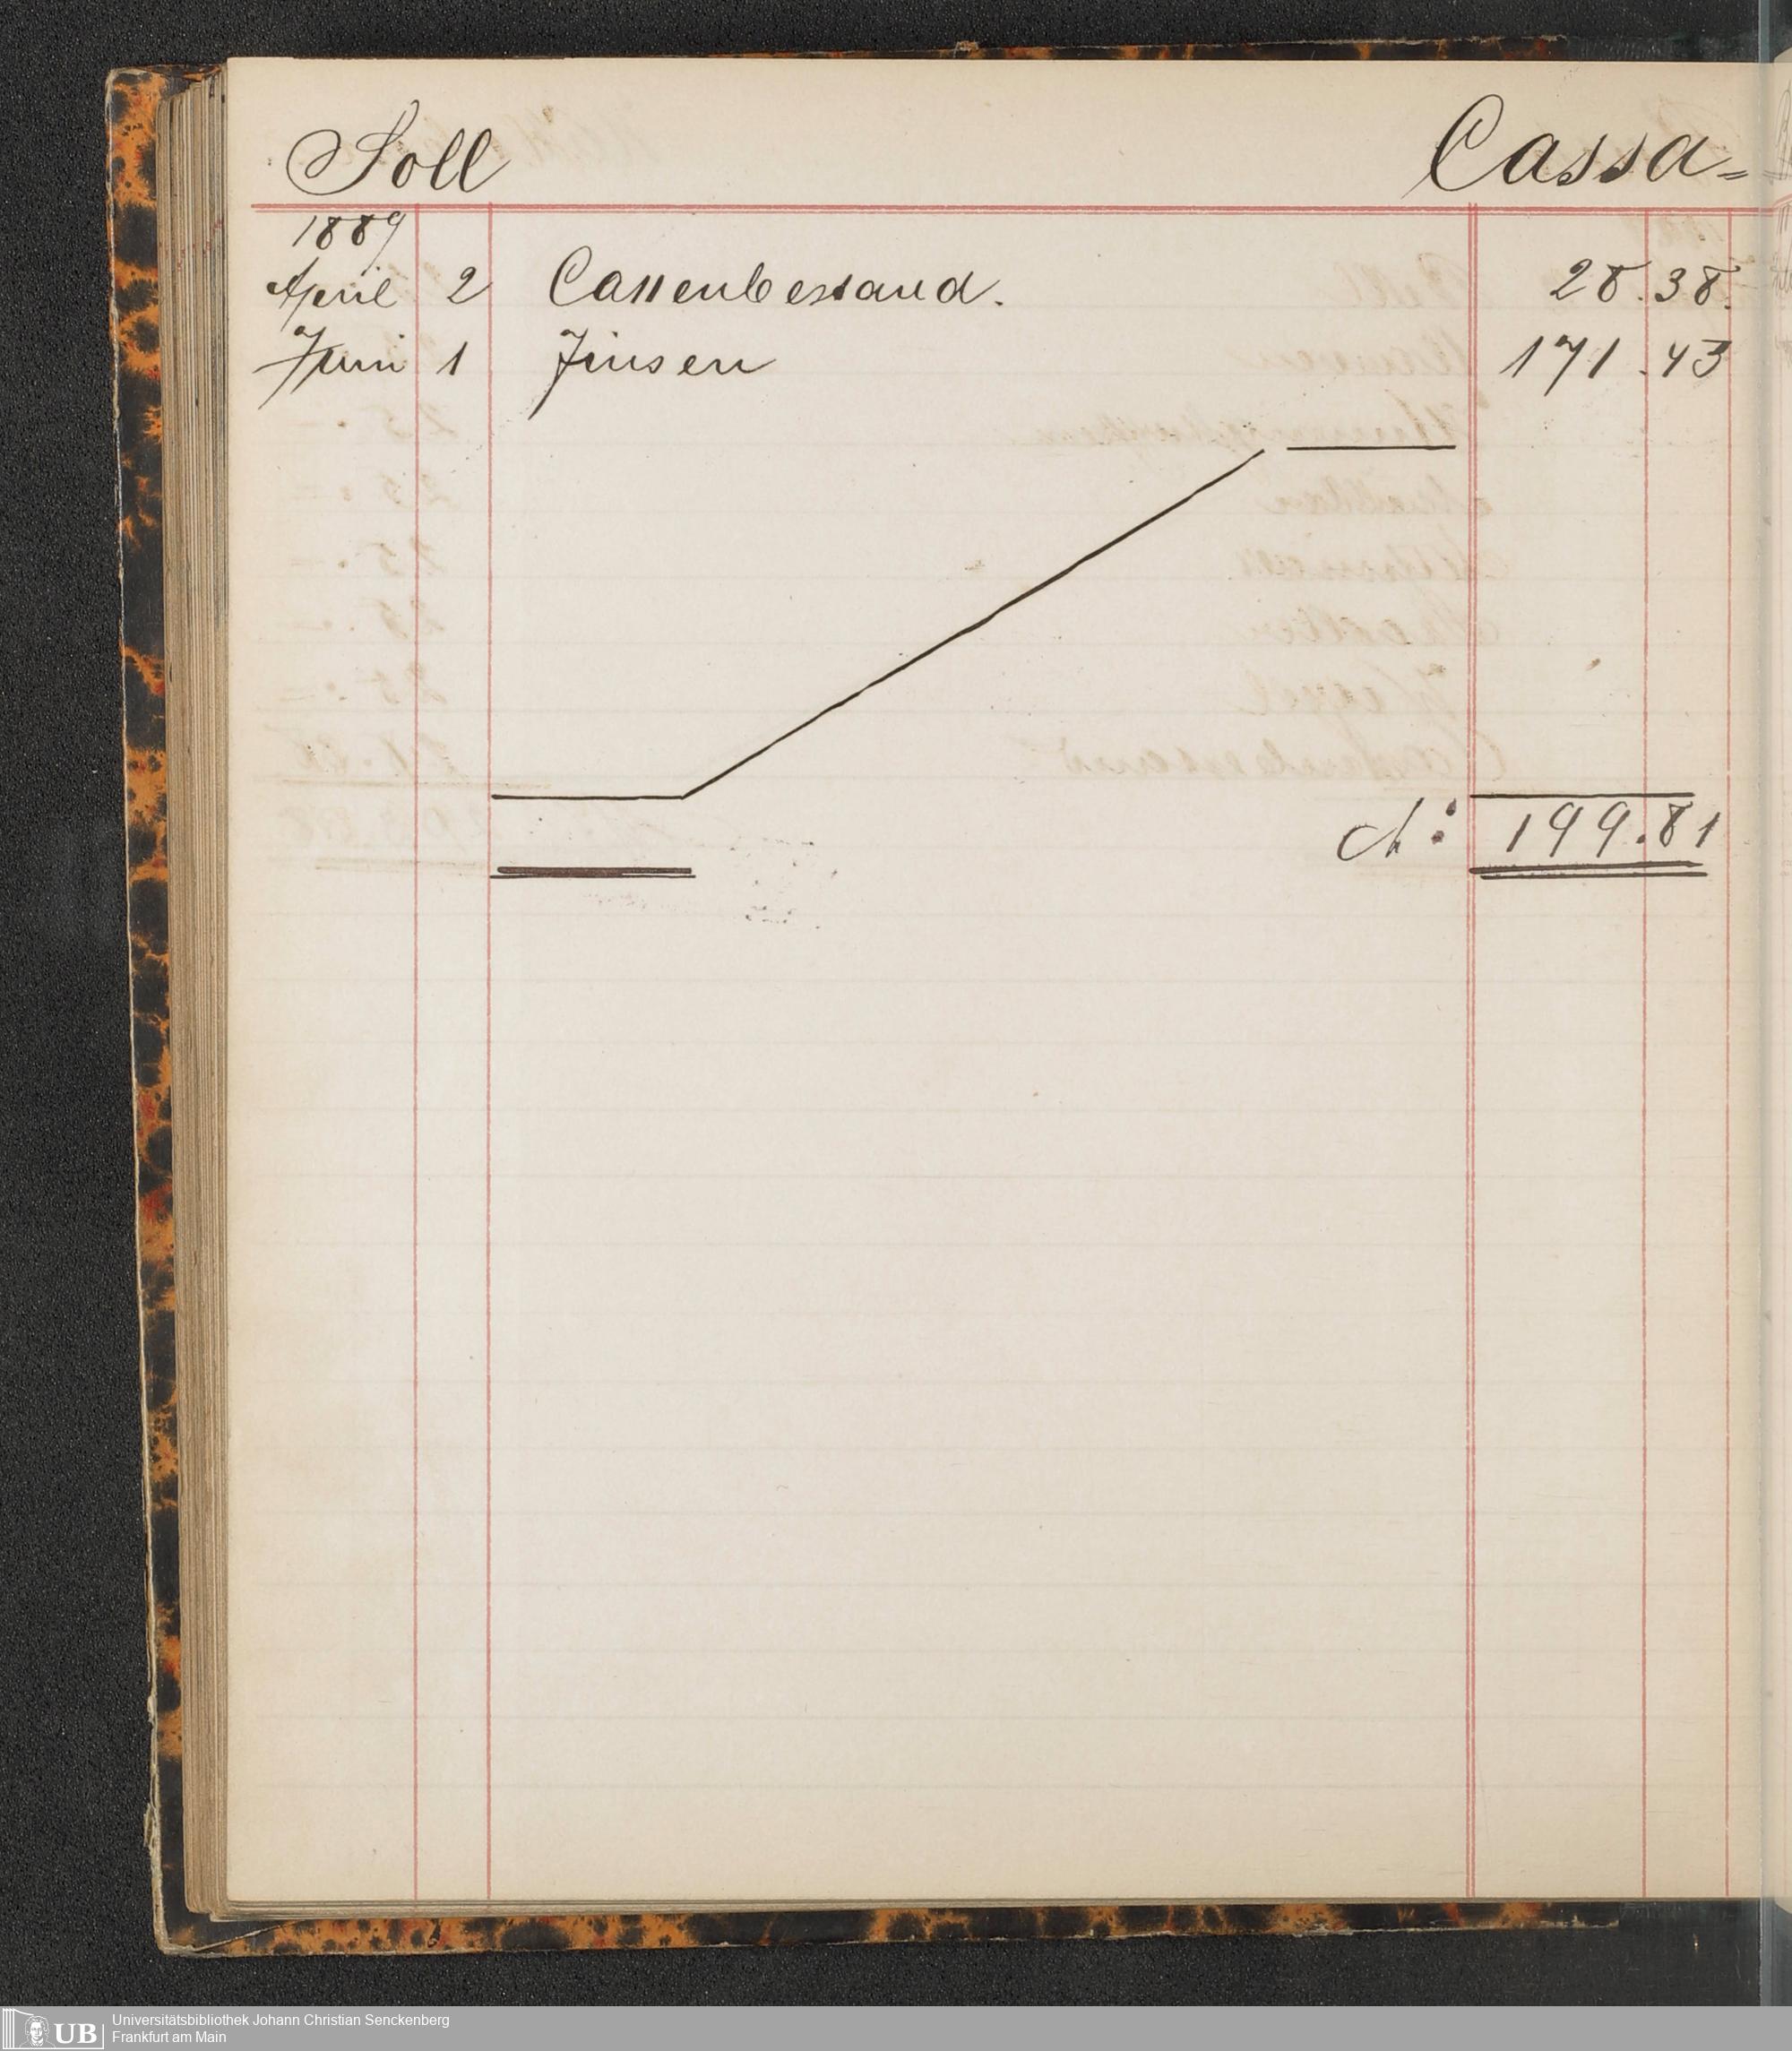 Soll Cassa-
1889
April 2 Cassenbestand. 28.38.
Juni 1 Zinsen 171.43
M: 199.81
UB Universitätsbibliothek Johann Christian Senckenberg
Frankfurt am Main